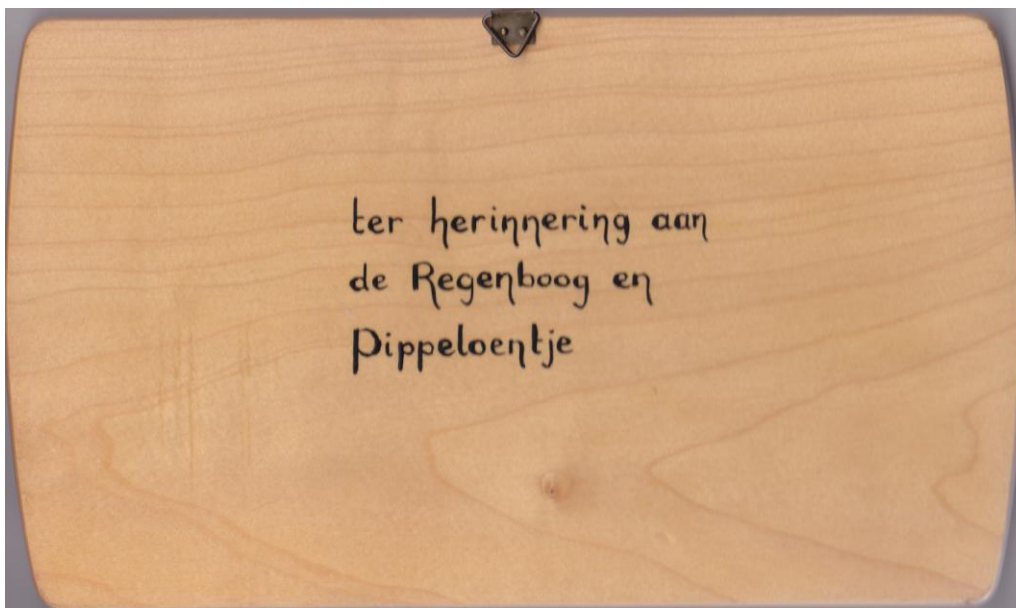 ter herinnering aan
de Regenboog en
Pippeloentje